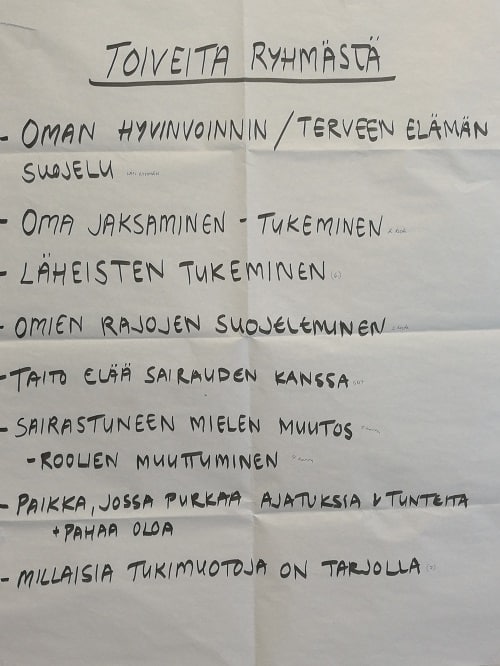 TOIVEITA RYHMÄSTÄ
- OMAN HYVINVOINNIN / TERVEEN ELÄMÄN
SUOJELU
- OMA JAKSAMINEN - TUKEMINEN
- LÄHEISTEN TUKEMINEN
- OMIEN RAJOJEN SUOJELEMINEN
- TAITO ELÄÄ SAIRAUDEN KANSSA
- SAIRASTUNEEN MIELEN MUUTOS
- ROOLIEN MUUTTUMINEN
- PAIKKA, JOSSA PURKAA AJATUKSIA & TUNTEITA
+ PAHAA OLOA
- MILLAISIA TUKIMUOTOJA ON TARJOLLA